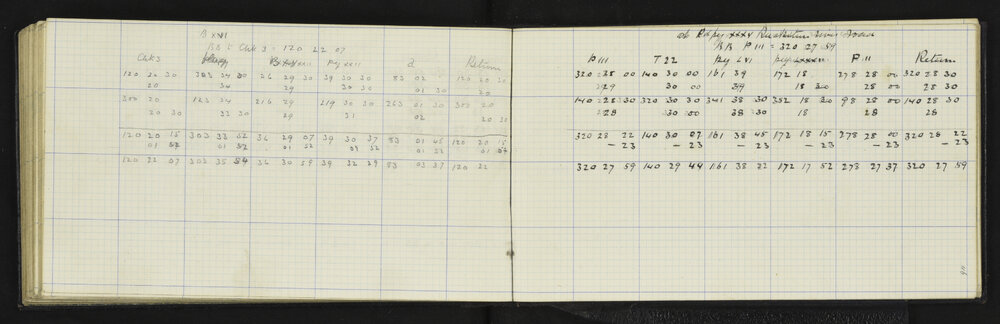 B XVI
BB to Chk 3 = 120 22 07
Chk 3 Peg XXII a Return
120 20 30 302 34 00 216 29 30 39 30 30 83 02 120 20 30
20 34 29 30 30 01 30 20
300 20 123 34 216 29 219 30 30 263 01 30 300 20
20 30 33 30 29 31 02 20 30
120 20 15 303 33 52 36 29 07 39 30 37 83 01 45 120 20 15
01 52 01 52 01 52 01 52 01 52 01 52
120 22 07 303 35 54 36 30 59 39 32 29 83 03 37 120 22
BB P III = 320 27 59
P III T 22 Peg LVI P II Return
320 28 00 140 30 00 161 39 172 18 278 28 00 320 28 30
29 30 00 39 18 30 28 00 28 30
140 28 30 320 30 30 341 38 30 352 18 30 98 28 00 140 28 30
28 30 00 38 30 18 28 28
320 28 22 140 30 07 161 38 45 172 18 15 278 28 00 320 28 22
– 23 – 23 – 23 – 23 – 23 – 23
320 27 59 140 29 44 161 38 22 172 17 52 278 27 37 320 27 59